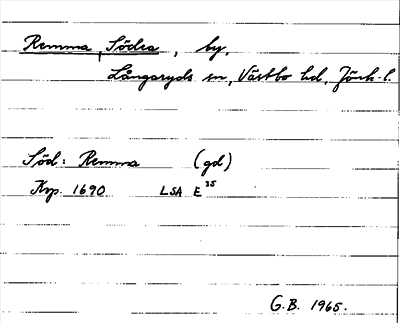 Remma, Södra, by,
Långaryds sn, Västbo hd, Jönk. l.
Söd: Remma (gd)
Krp. 1690 LSA E 15
G.B. 1965.